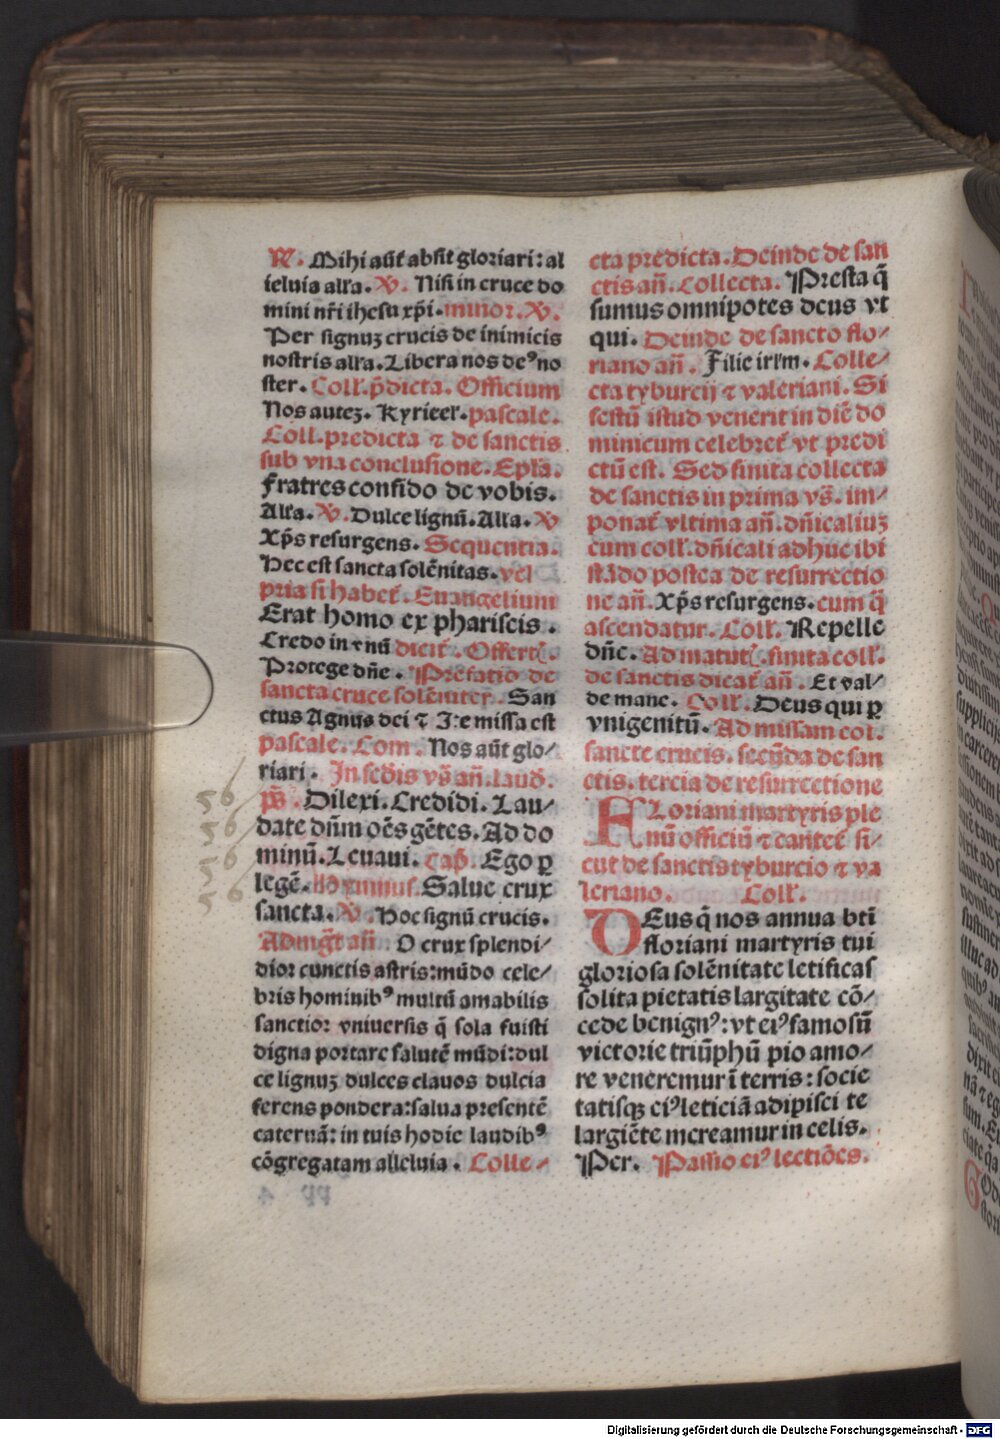 R. Mihi aūt absit gloriari: al
leluia alľa. V. Nisi in cruce do
mini nr̄i ihesu xp̄i. minor. V.
Per signuʒ crucis de inimicis
nostris alľa. Libera nos deꝰ no
ster. Coll. p̄dicta. Officium
Nos auteʒ. Kyrieel'. pascale.
Coll. predicta ⁊ de sanctis
sub vna conclusione. Epľa.
Fratres confido de vobis.
Alľa. V. Dulce lignū. Alľa. V
Xp̄s resurgens. Sequentia.
Hec est sancta solēnitas. vel
pria si habet'. Euangelium
Erat homo ex phariseis.
Credo in vnū dicit'. Offert.
Protege dn̄e. Prefatio de
sancta cruce solēniter. San
ctus Agnus dei ⁊ Ite missa est
pascale. Com. Nos aūt glo/
riari. In scd̄is vs̄ an̄. laud̄.
ps̄. Dilexi. Credidi. Lau/
date dn̄m oēs gētes. Ad do
minū. Leuaui. Cap̄. Ego ꝑ
legē. Hoymnus. Salue crux
sancta. V. Hoc signū crucis.
Ad mgt̄ an̄. O crux splendi/
dior cunctis astris: mūdo cele/
bris hominibꝰ multū amabilis
sanctior vniuersis q̄ sola fuisti
digna portare salutē mūdi: dul
ce lignuʒ dulces clauos dulcia
ferens pondera: salua presentē
cateruā: in tuis hodie laudibꝰ
cōgregatam alleluia. Colle/
cta predicta. Deinde de san
ctis an̄. Collecta. Presta q̄
sumus omnipotes deus vt
qui. Deinde de sancto flo/
riano an̄. Filie irľm. Colle/
cta tyburcij ⁊ valeriani. Si
festū istud venerit in diē do
minicum celebret' vt predi
ctū est. Sed finita collecta
de sanctis in prima vs̄. im/
ponat' vltima an̄. dn̄icaliuʒ
cum coll'. dn̄icali adhuc ibi
stādo postea de resurrectio
ne an̄. Xp̄s resurgens. cum q̄
ascendatur. Coll'. Repelle
dn̄e. Ad matut. finita coll'.
de sanctis dicat' an̄. Et val/
de mane. Coll'. Deus qui ꝑ
vnigenitū. Ad missam col.
sancte crucis. secūda de san
ctis. tercia de resurrectione
FLoriani martyris ple
nū officiū ⁊ cantet' si/
cut de sanctis tyburcio ⁊ va
leriano. Coll'.
DEus q̄ nos annua bt̄i
floriani martyris tui
gloriosa solēnitate letificas
solita pietatis largitate cō/
cede benignꝰ: vt eiꝰ famosū
victorie triūphū pio amo/
re veneremur ī terris: socie
tatisqʒ eiꝰ leticiā adipisci te
largiēte mereamur in celis.
Per. Passio eiꝰ lectiōes.
56
56
56
56
Digitalisierung gefördert durch die Deutsche Forschungsgemeinschaft - DFG